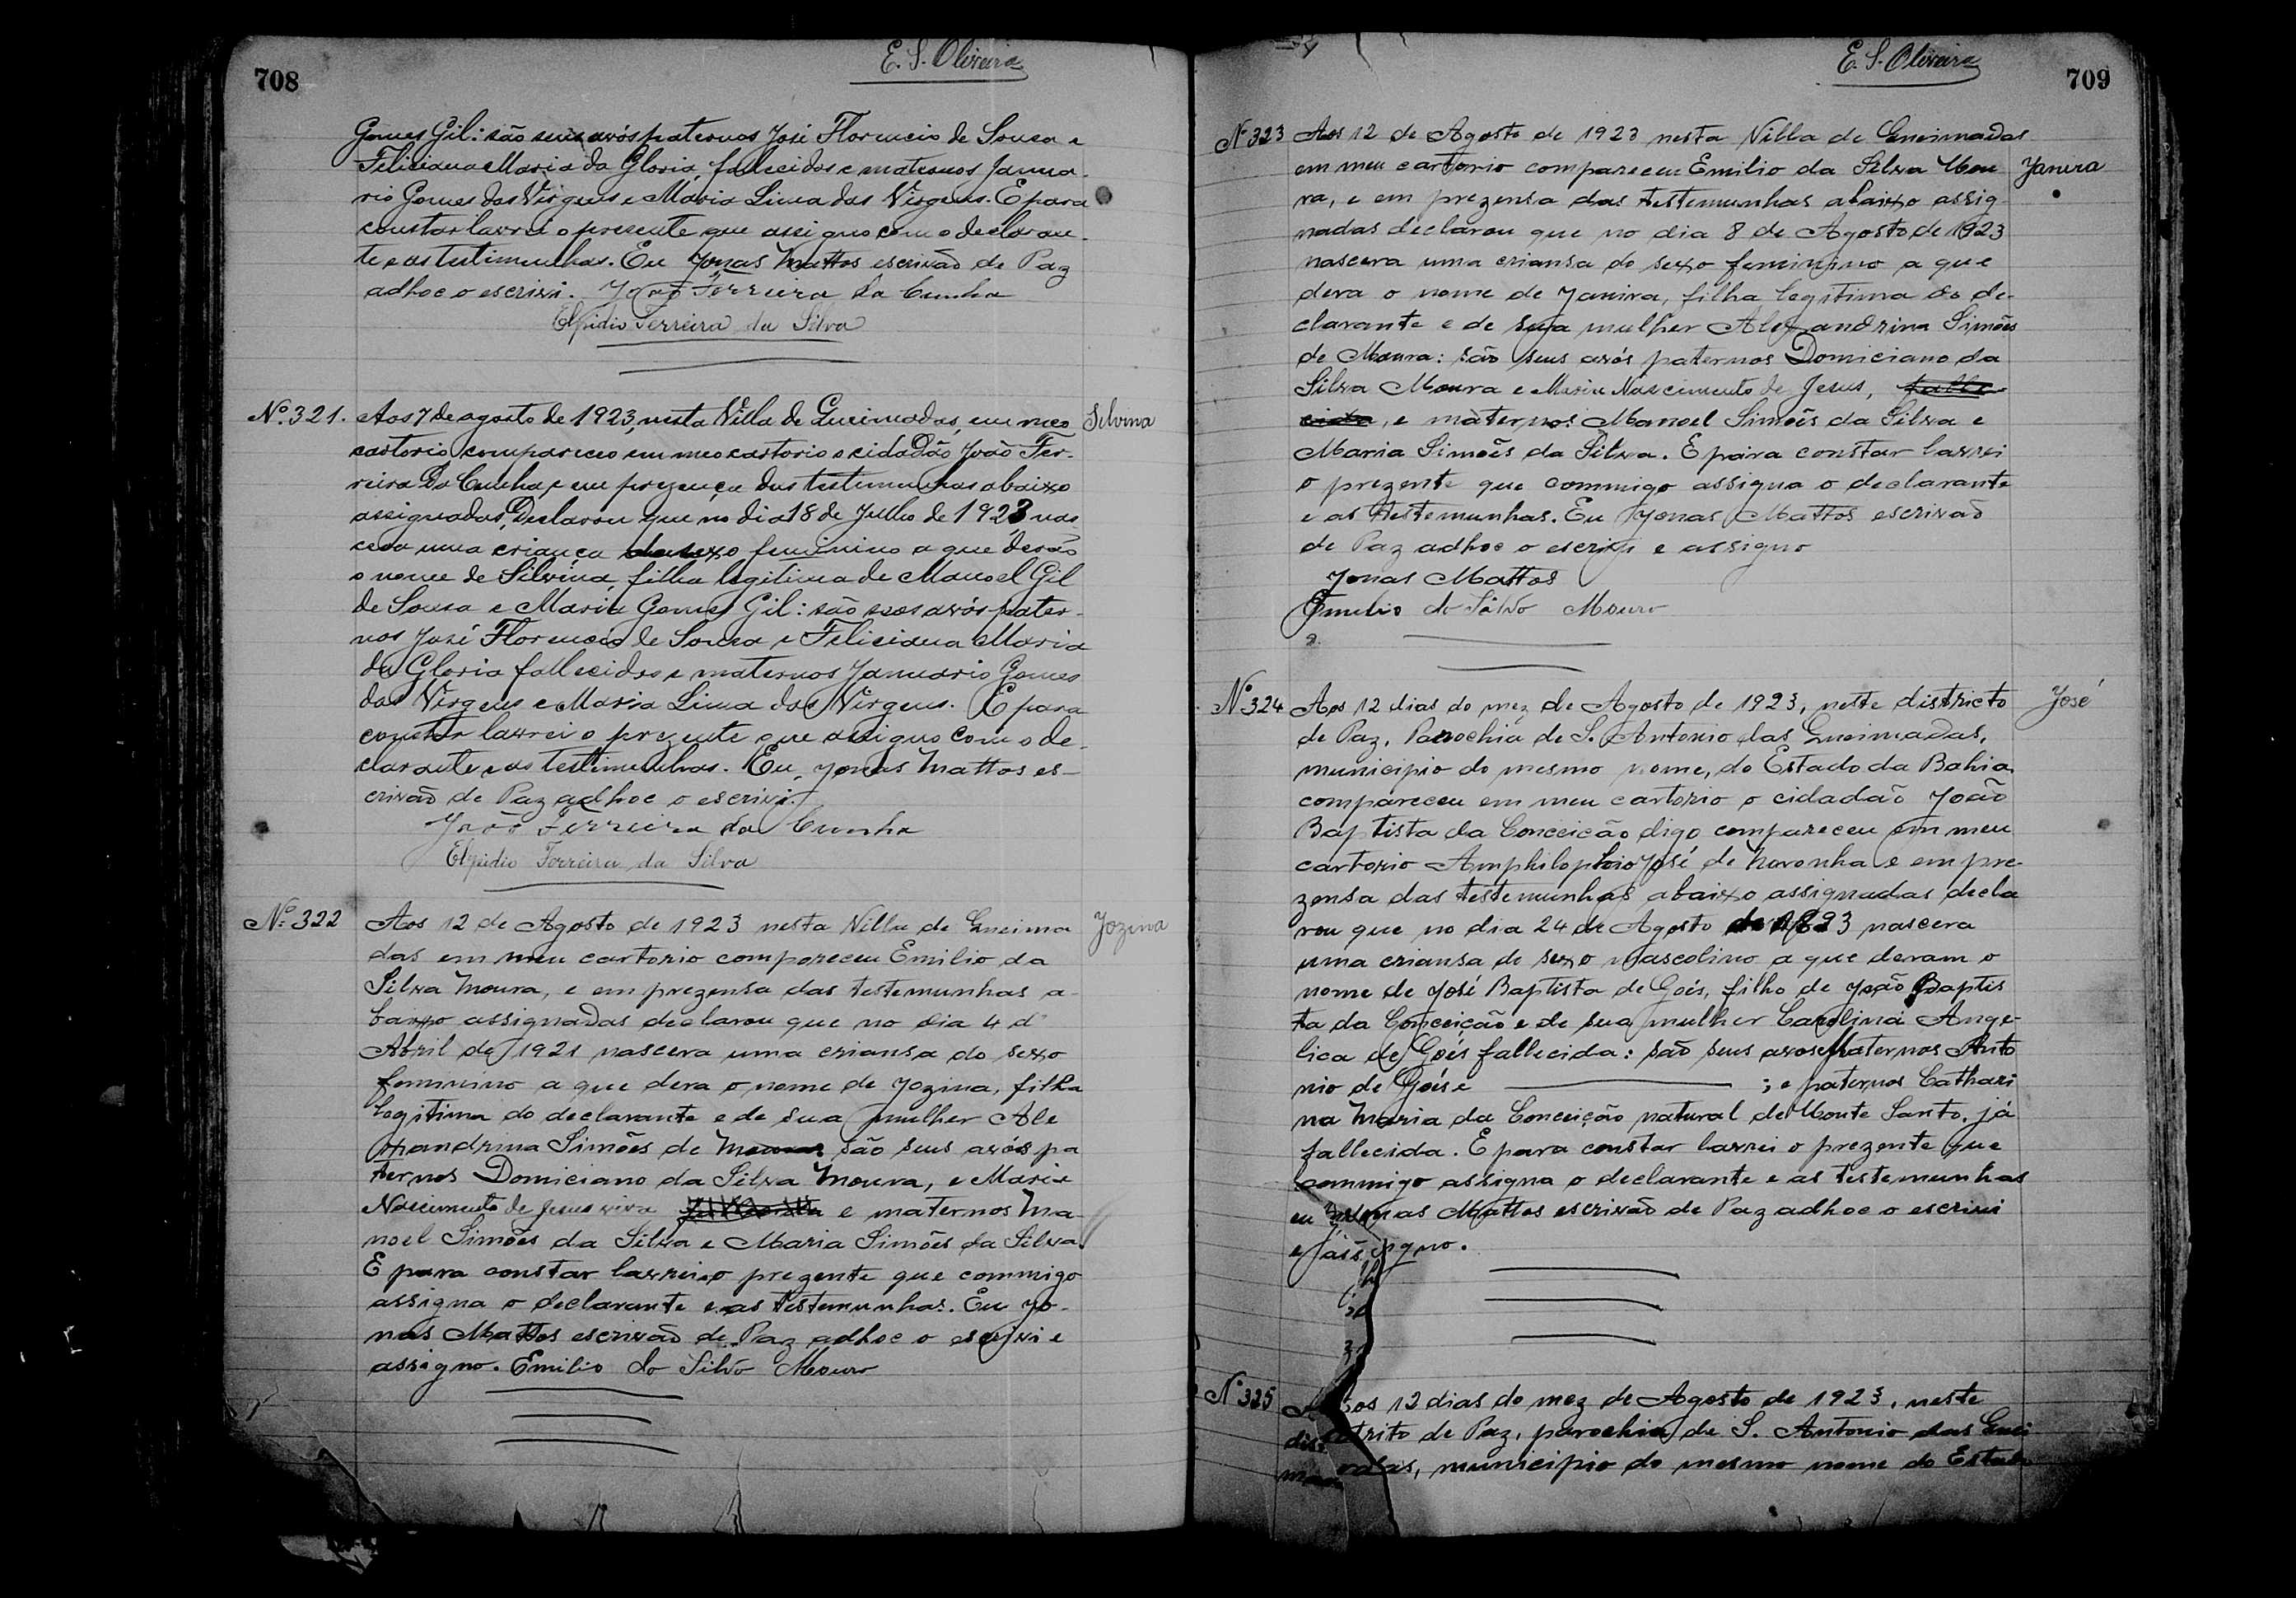 708
E. S. Oliveira
Gomes Gil: são seus avós paternos José Florencio de Sousa e
Feliciana Maria da Gloria, fallecidos e maternos Janua-
rio Gomes das Virgens e Maria Lima das Virgens. E para
constar lavrei o presente que assigno com o declaran-
te e as testimunhas. Eu Jonas Mattos escrivão de Paz
adhoc o escrivi. João Ferreira da Cunha
Elpidio Ferreira da Silva
Nº 321. Aos 7 de agosto de 1923, nesta Villa de Queimadas, em meo Silvina
cartorio compareceo em meo cartorio o cidadão João Fer-
reira da Cunha, e em prezença das testimunhas abaixo
assignadas, Declarou que no dia 18 de Julho de 1923 nas
cera uma criança do sexo feminino a que derão
o nome de Silvina, filha legitima de Manoel Gil
de Sousa e Maria Gomes Gil: são seos avós pater-
nos José Florencio de Sousa e Feliciana Maria
da Gloria fallecidos e maternos Januario Gomes
das Virgens e Maria Lima das Virgens. E para
constar lavrei o prezente que assigno com o de-
clarante e as testimunhas. Eu, Jonas Mattos es-
crivão de Paz adhoc o escrivi.
João Ferreira da Cunha
Elpidio Ferreira da Silva
Nº 322 Aos 12 de Agosto de 1923 nesta Villa de Queima Jozina
das em meu cartorio compareceu Emilio da
Silva Moura, e em prezensa das testemunhas a-
baixo assignadas declarou que no dia 4 d
Abril de 1921 nascera uma criansa do sexo
feminino a que dera o nome de Jozina, filha
legitima do declarante e de sua mulher Ale
xandrina Simões de Moura são seus avós pa
ternos Domiciano da Silva Moura, e Maria
Nascimento de Jesus viva e maternos Ma-
noel Simões da Silva e Maria Simões da Silva.
E para constar lavrei o prezente que commigo
assigna o declarante e as testemunhas. Eu Jo-
nas Mattos escrivão de Paz adhoc o escrivi e
assigno. Emilio da Silva Moura
E. S. Oliveira
709
Nº 323 Aos 12 de Agosto de 1923 nesta Villa de Queimadas
em meu cartorio compareceu Emilio da Silva Mou Janira
ra, e em prezensa das testemunhas abaixo assig-
nadas declarou que no dia 8 de Agosto de 1923
nascera uma criansa do sexo feminino a que
dera o nome de Janira, filha legitima do de-
clarante e de sua mulher Alexandrina Simões
de Moura: são seus avós paternos Domiciano da
Silva Moura e Maria Nascimento de Jesus, falle
cida, e maternos Manoel Simões da Silva e
Maria Simões da Silva. E para constar lavrei
o prezente que commigo assigna o declarante
e as testemunhas. Eu Jonas Mattos escrivão
de Paz adhoc o escrivi e assigno
Jonas Mattos
Emilio da Silva Moura
Nº 324 Aos 12 dias do mez de Agosto de 1923, neste districto José
de Paz, Parochia de S. Antonio das Queimadas,
municipio do mesmo nome, do Estado da Bahia
compareceu em meu cartorio o cidadão João
Baptista da Conceicão digo compareceu em meu
cartorio Amphilophio José de Noronha e em pre-
zensa das testemunhas abaixo assignadas decla
rou que no dia 24 de Agosto de 1893 nascera
uma criansa de sexo mascolino a que deram o
nome de José Baptista de Goés, filho de João Baptis
ta da Conceição e de sua mulher Carolina Ange-
lica de Goés fallecida: são seus avose maternos Anto
nio de Goés e ; e paternos Cathari
na Maria da Conceição natural de Monte Santo, já
fallecida. E para constar lavrei o prezente que
commigo assigna o declarante e as testemunhas
eu Jonas Mattos escrivão de Paz adhoc o escrivi
e assigno.
Nº 325 Aos 12 dias do mez de Agosto de 1923, neste
distrito de Paz, parochia de S. Antonio das Quei
madas, municipio do mesmo nome do Estado